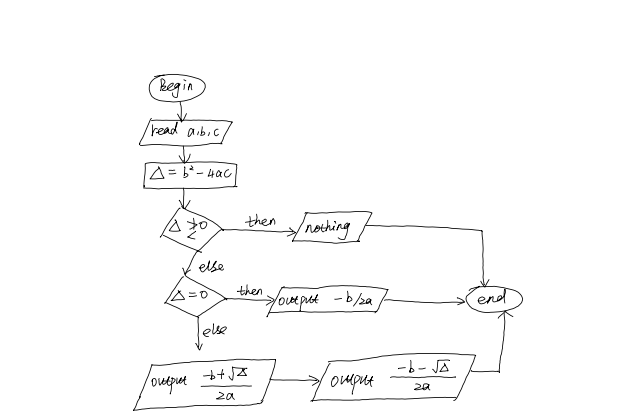 Begin
read a,b,c
Δ = b² - 4ac
then
nothing
else
Δ = 0
then
output -b/2a
end
else
output (-b + √Δ)/2a
output (-b - √Δ)/2a